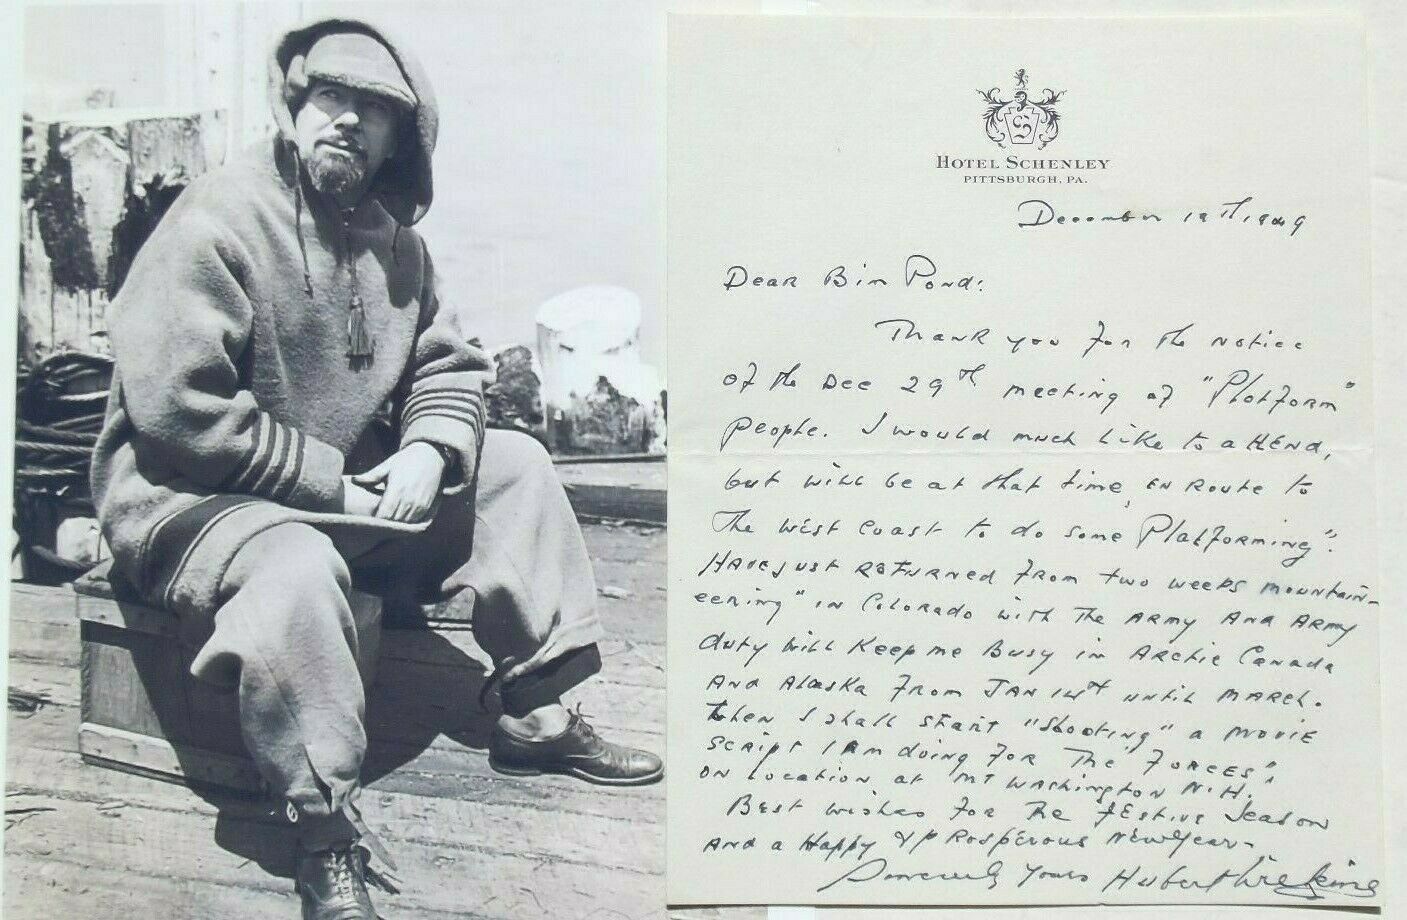 HOTEL SCHENLEY
PITTSBURGH, PA.
December 19th, 1949
Dear Bim Pond:
Thank you for the notice
of the Dec 29th meeting of "Platform"
people. I would much like to attend,
but will be at that time, en route to
the West Coast to do some "Platforming".
Have just returned from two weeks mountain-
eering" in Colorado with the Army and Army
duty will keep me busy in Arctic Canada
and Alaska from Jan 14th until March.
Then I shall start "shooting" a movie
script I am doing for the "Forces",
on location at Mt Washington N.H."
Best wishes for the festive season
and a Happy & Prosperous New Year-
Sincerely Yours Hubert